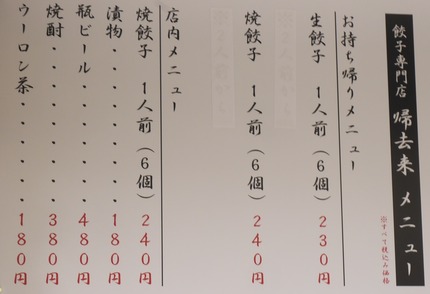 餃子専門店 帰去来 メニュー
※すべて税込み価格
お持ち帰りメニュー
生餃子 1人前(6個)230円
焼餃子 1人前(6個)240円
店内メニュー
焼餃子 1人前(6個)240円
漬物・・・・・・・・180円
瓶ビール・・・・・・480円
焼酎・・・・・・・・380円
ウーロン茶・・・・・180円